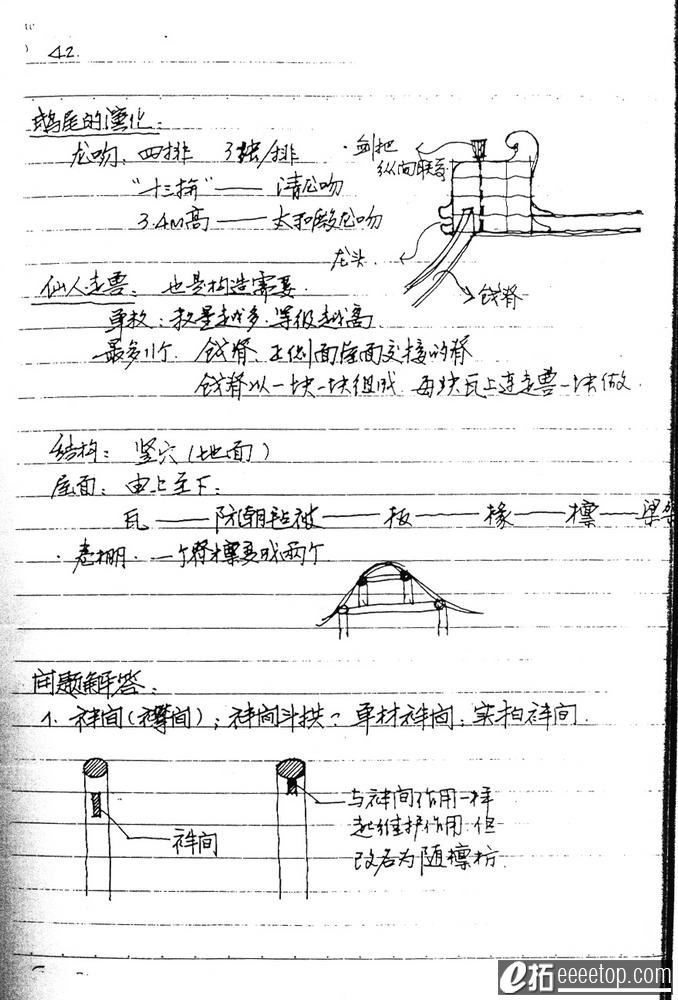 42.
鸱尾的演化:
龙吻、四排 3块/排
"十三拼"——清龙吻
3.4M高——太和殿龙吻
·剑把
纵向联系
龙头
戗脊
仙人走兽: 也是构造需要
单数: 数量越多.等级越高
最多11个. 戗脊.正侧面屋面交接的脊
戗脊以一块一块组成 每块瓦上连走兽一块做.
结构: 竖穴(地面)
屋面: 由上至下:
瓦——防潮毡被——板——椽——檩——梁
·卷棚. 一个脊檩变成两个
问题解答:
1. 间(间);间斗拱 单材间;实拍间.
间
与间作用一样
起维护作用.但
改名为随檩枋.
e拓eeeetop.com